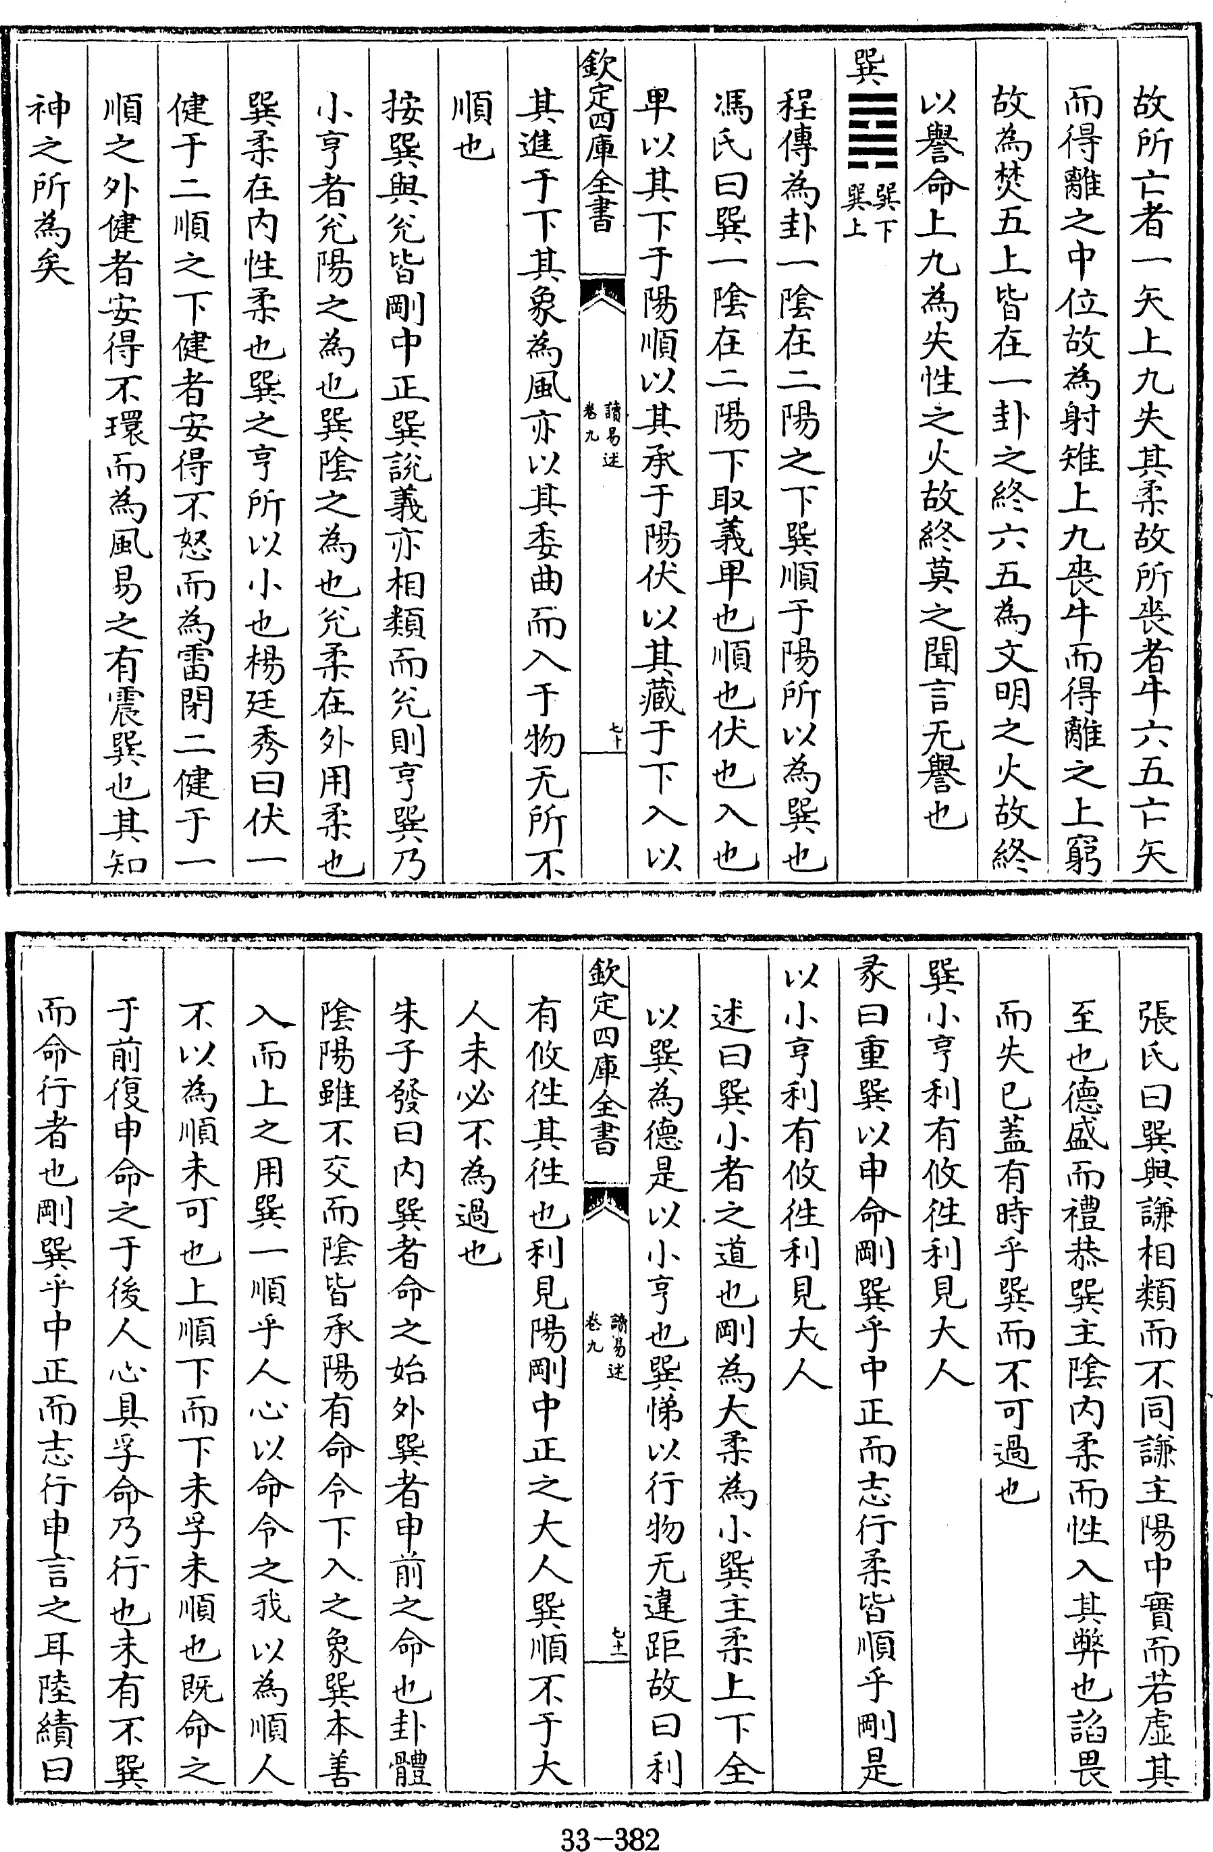 故所亡者一矢上九失其柔故所喪者牛六五亡矢
而得離之中位故為射雉上九喪牛而得離之上窮
故為焚五上皆在一卦之終六五為文明之火故終
以譽命上九為失性之火故終莫之聞言无譽也
巽䷸巽下巽上
程傳為卦一陰在二陽之下巽順于陽所以為巽也
馮氏曰巽一陰在二陽下取義卑也順也伏也入也
卑以其下于陽順以其承于陽伏以其藏于下入以
欽定四庫全書 讀易述 卷九 七十
其進于下其象為風亦以其委曲而入于物无所不
順也
按巽與兊皆剛中正巽説義亦相類而兊則亨巽乃
小亨者兊陽之為也巽陰之為也兊柔在外用柔也
巽柔在内性柔也巽之亨所以小也楊廷秀曰伏一
健于二順之下健者安得不怒而為雷閉二健于一
順之外健者安得不環而為風易之有震巽也其知
神之所為矣
張氏曰巽與謙相類而不同謙主陽中實而若虛其
至也德盛而禮恭巽主陰内柔而性入其弊也諂畏
而失已蓋有時乎巽而不可過也
巽小亨利有攸往利見大人
彖曰重巽以申命剛巽乎中正而志行柔皆順乎剛是
以小亨利有攸往利見大人
述曰巽小者之道也剛為大柔為小巽主柔上下全
以巽為德是以小亨也巽悌以行物无違距故曰利
欽定四庫全書 讀易述 卷九 七十一
有攸往其往也利見陽剛中正之大人巽順不于大
人未必不為過也
朱子發曰内巽者命之始外巽者申前之命也卦體
陰陽雖不交而陰皆承陽有命令下入之象巽本善
入而上之用巽一順乎人心以命令之我以為順人
不以為順未可也上順下而下未孚未順也既命之
于前復申命之于後人心具孚命乃行也未有不巽
而命行者也剛巽乎中正而志行申言之耳陸績曰
33-382